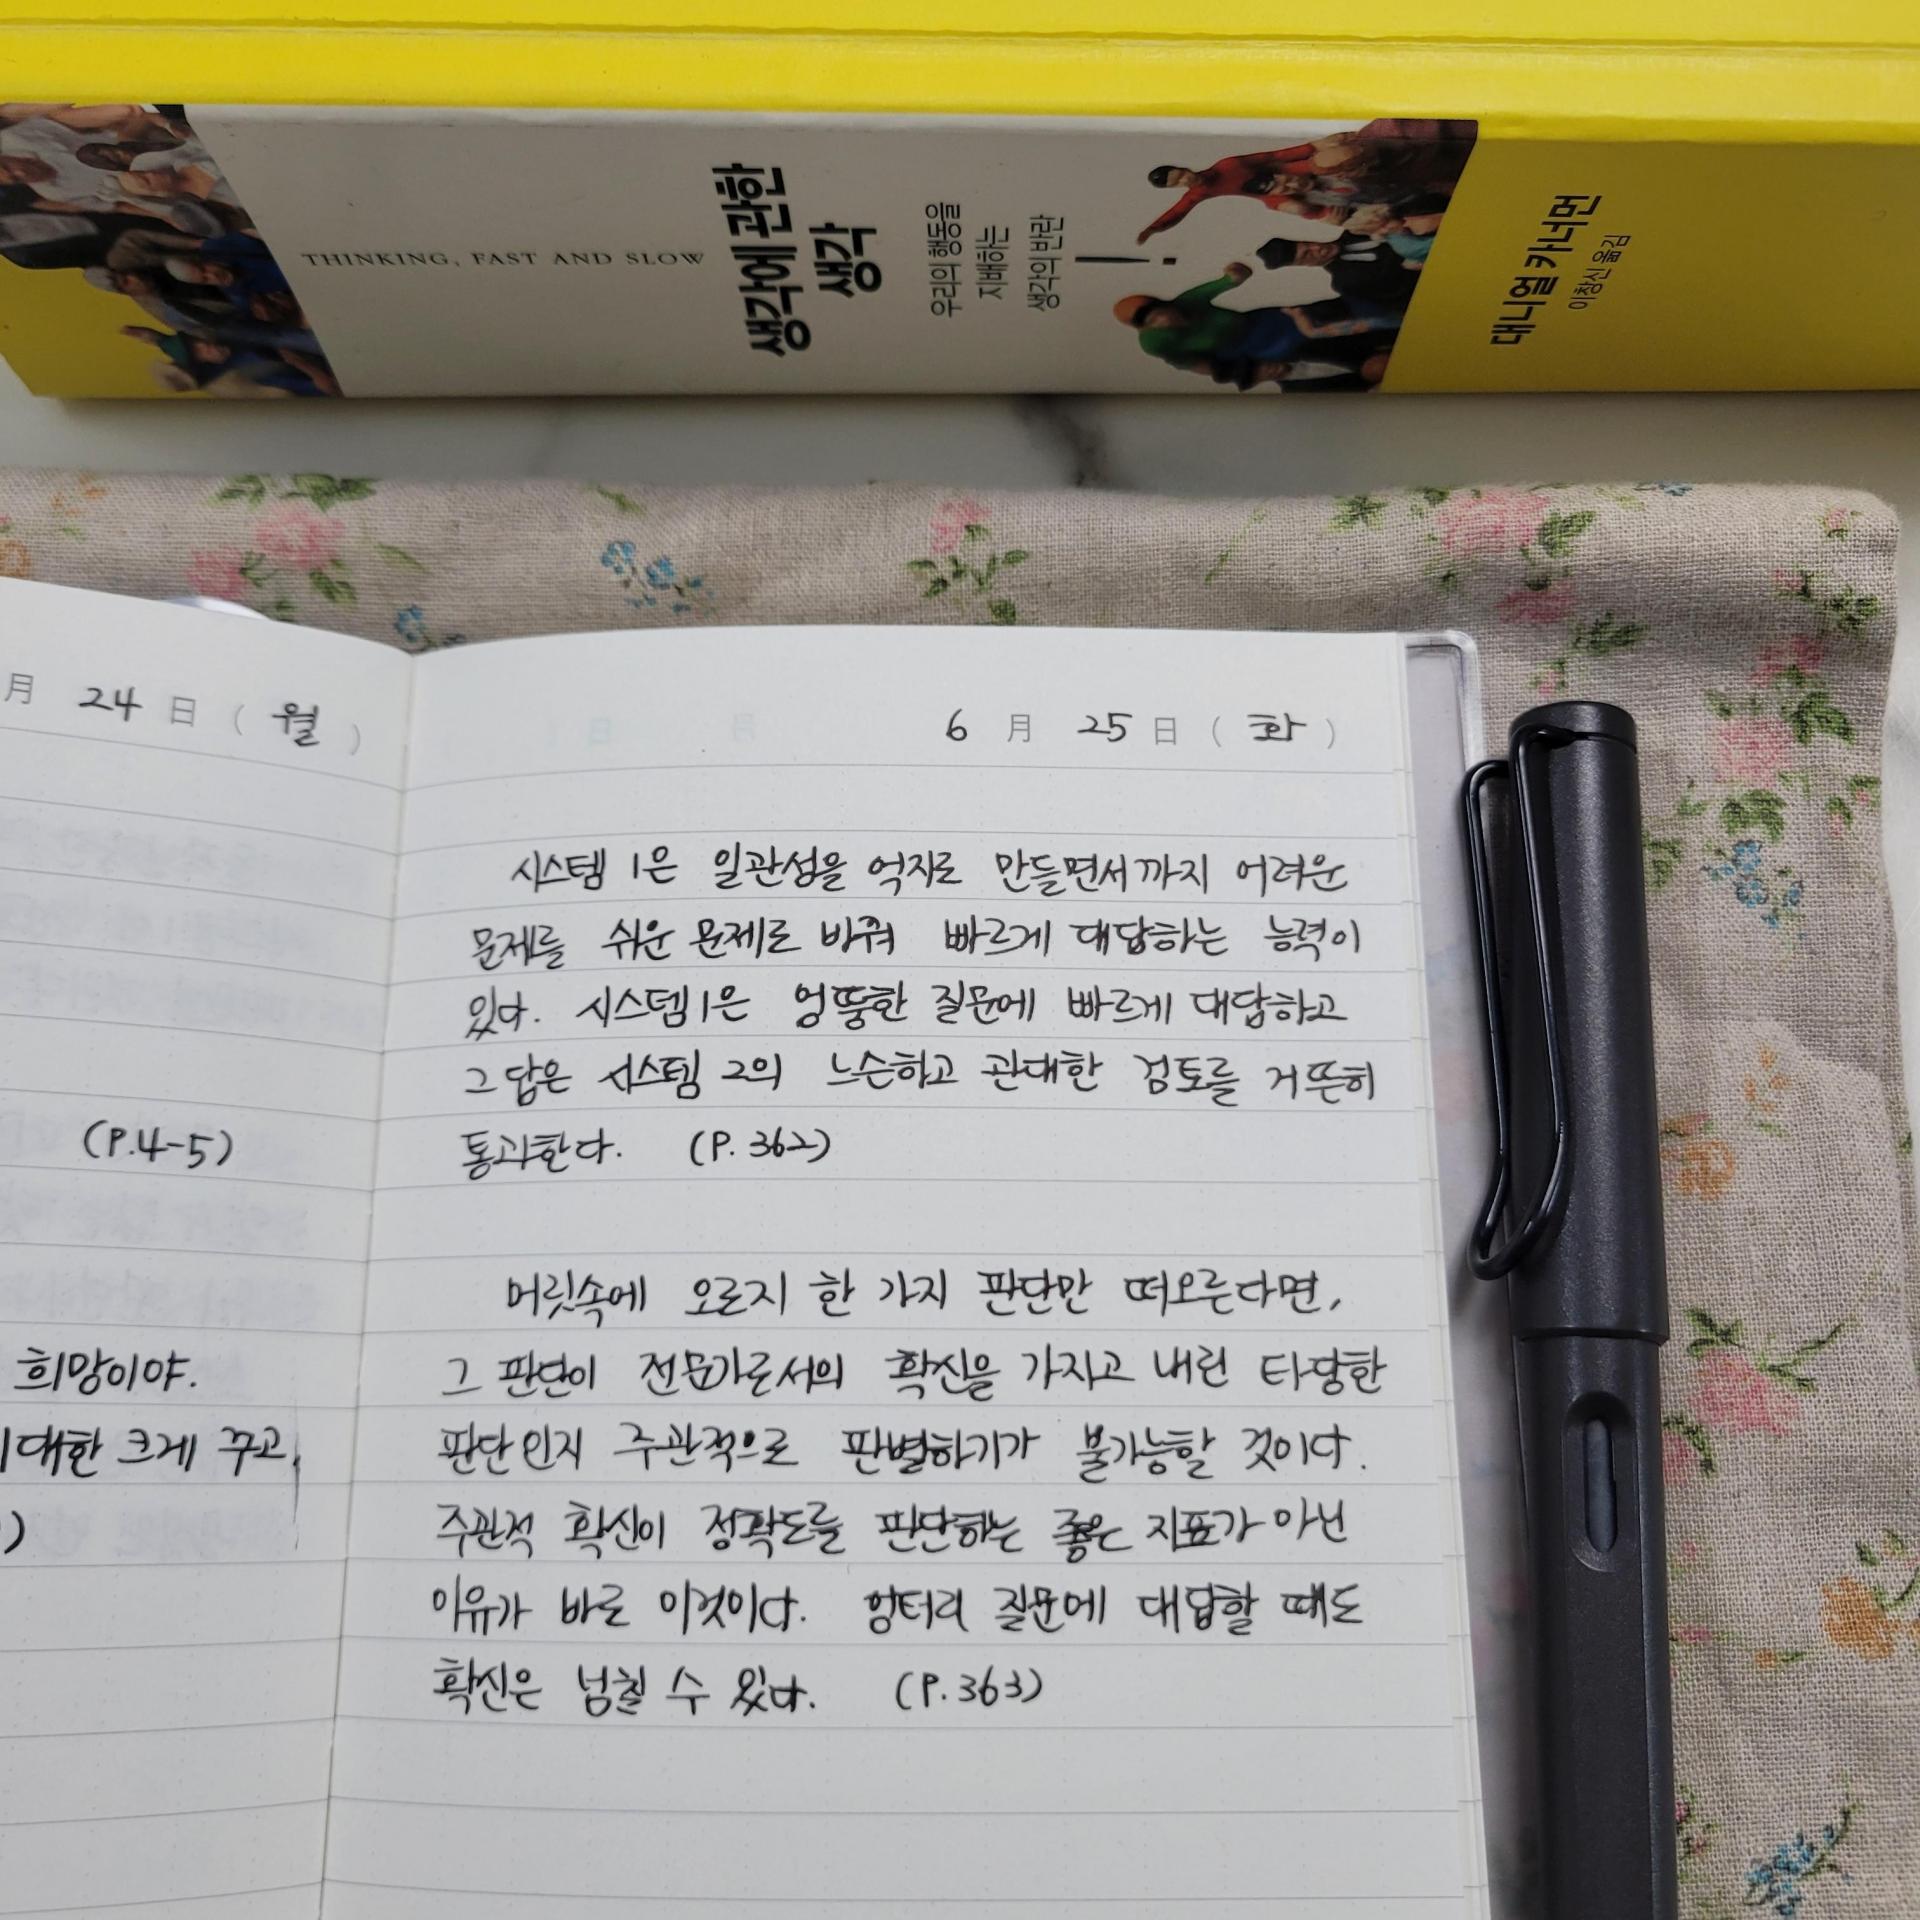 THINKING, FAST AND SLOW
생각에 관한
생각
우리의 행동을
지배하는
생각의 반란
!
대니얼 카너먼
이창신 옮김
月 24 日 ( 월 )
(P.4-5)
희망이야.
대한 크게 꾸고,
)
6 月 25 日 ( 화 )
시스템 1은 일관성을 억지로 만들면서까지 어려운
문제를 쉬운 문제로 바꿔 빠르게 대답하는 능력이
있다. 시스템1은 엉뚱한 질문에 빠르게 대답하고
그 답은 시스템 2의 느슨하고 관대한 검토를 거뜬히
통과한다. (P. 362)
머릿속에 오로지 한 가지 판단만 떠오른다면,
그 판단이 전문가로서의 확신을 가지고 내린 타당한
판단인지 주관적으로 판별하기가 불가능할 것이다.
주관적 확신이 정확도를 판단하는 좋은 지표가 아닌
이유가 바로 이것이다. 엉터리 질문에 대답할 때도
확신은 넘칠 수 있다. (P.363)